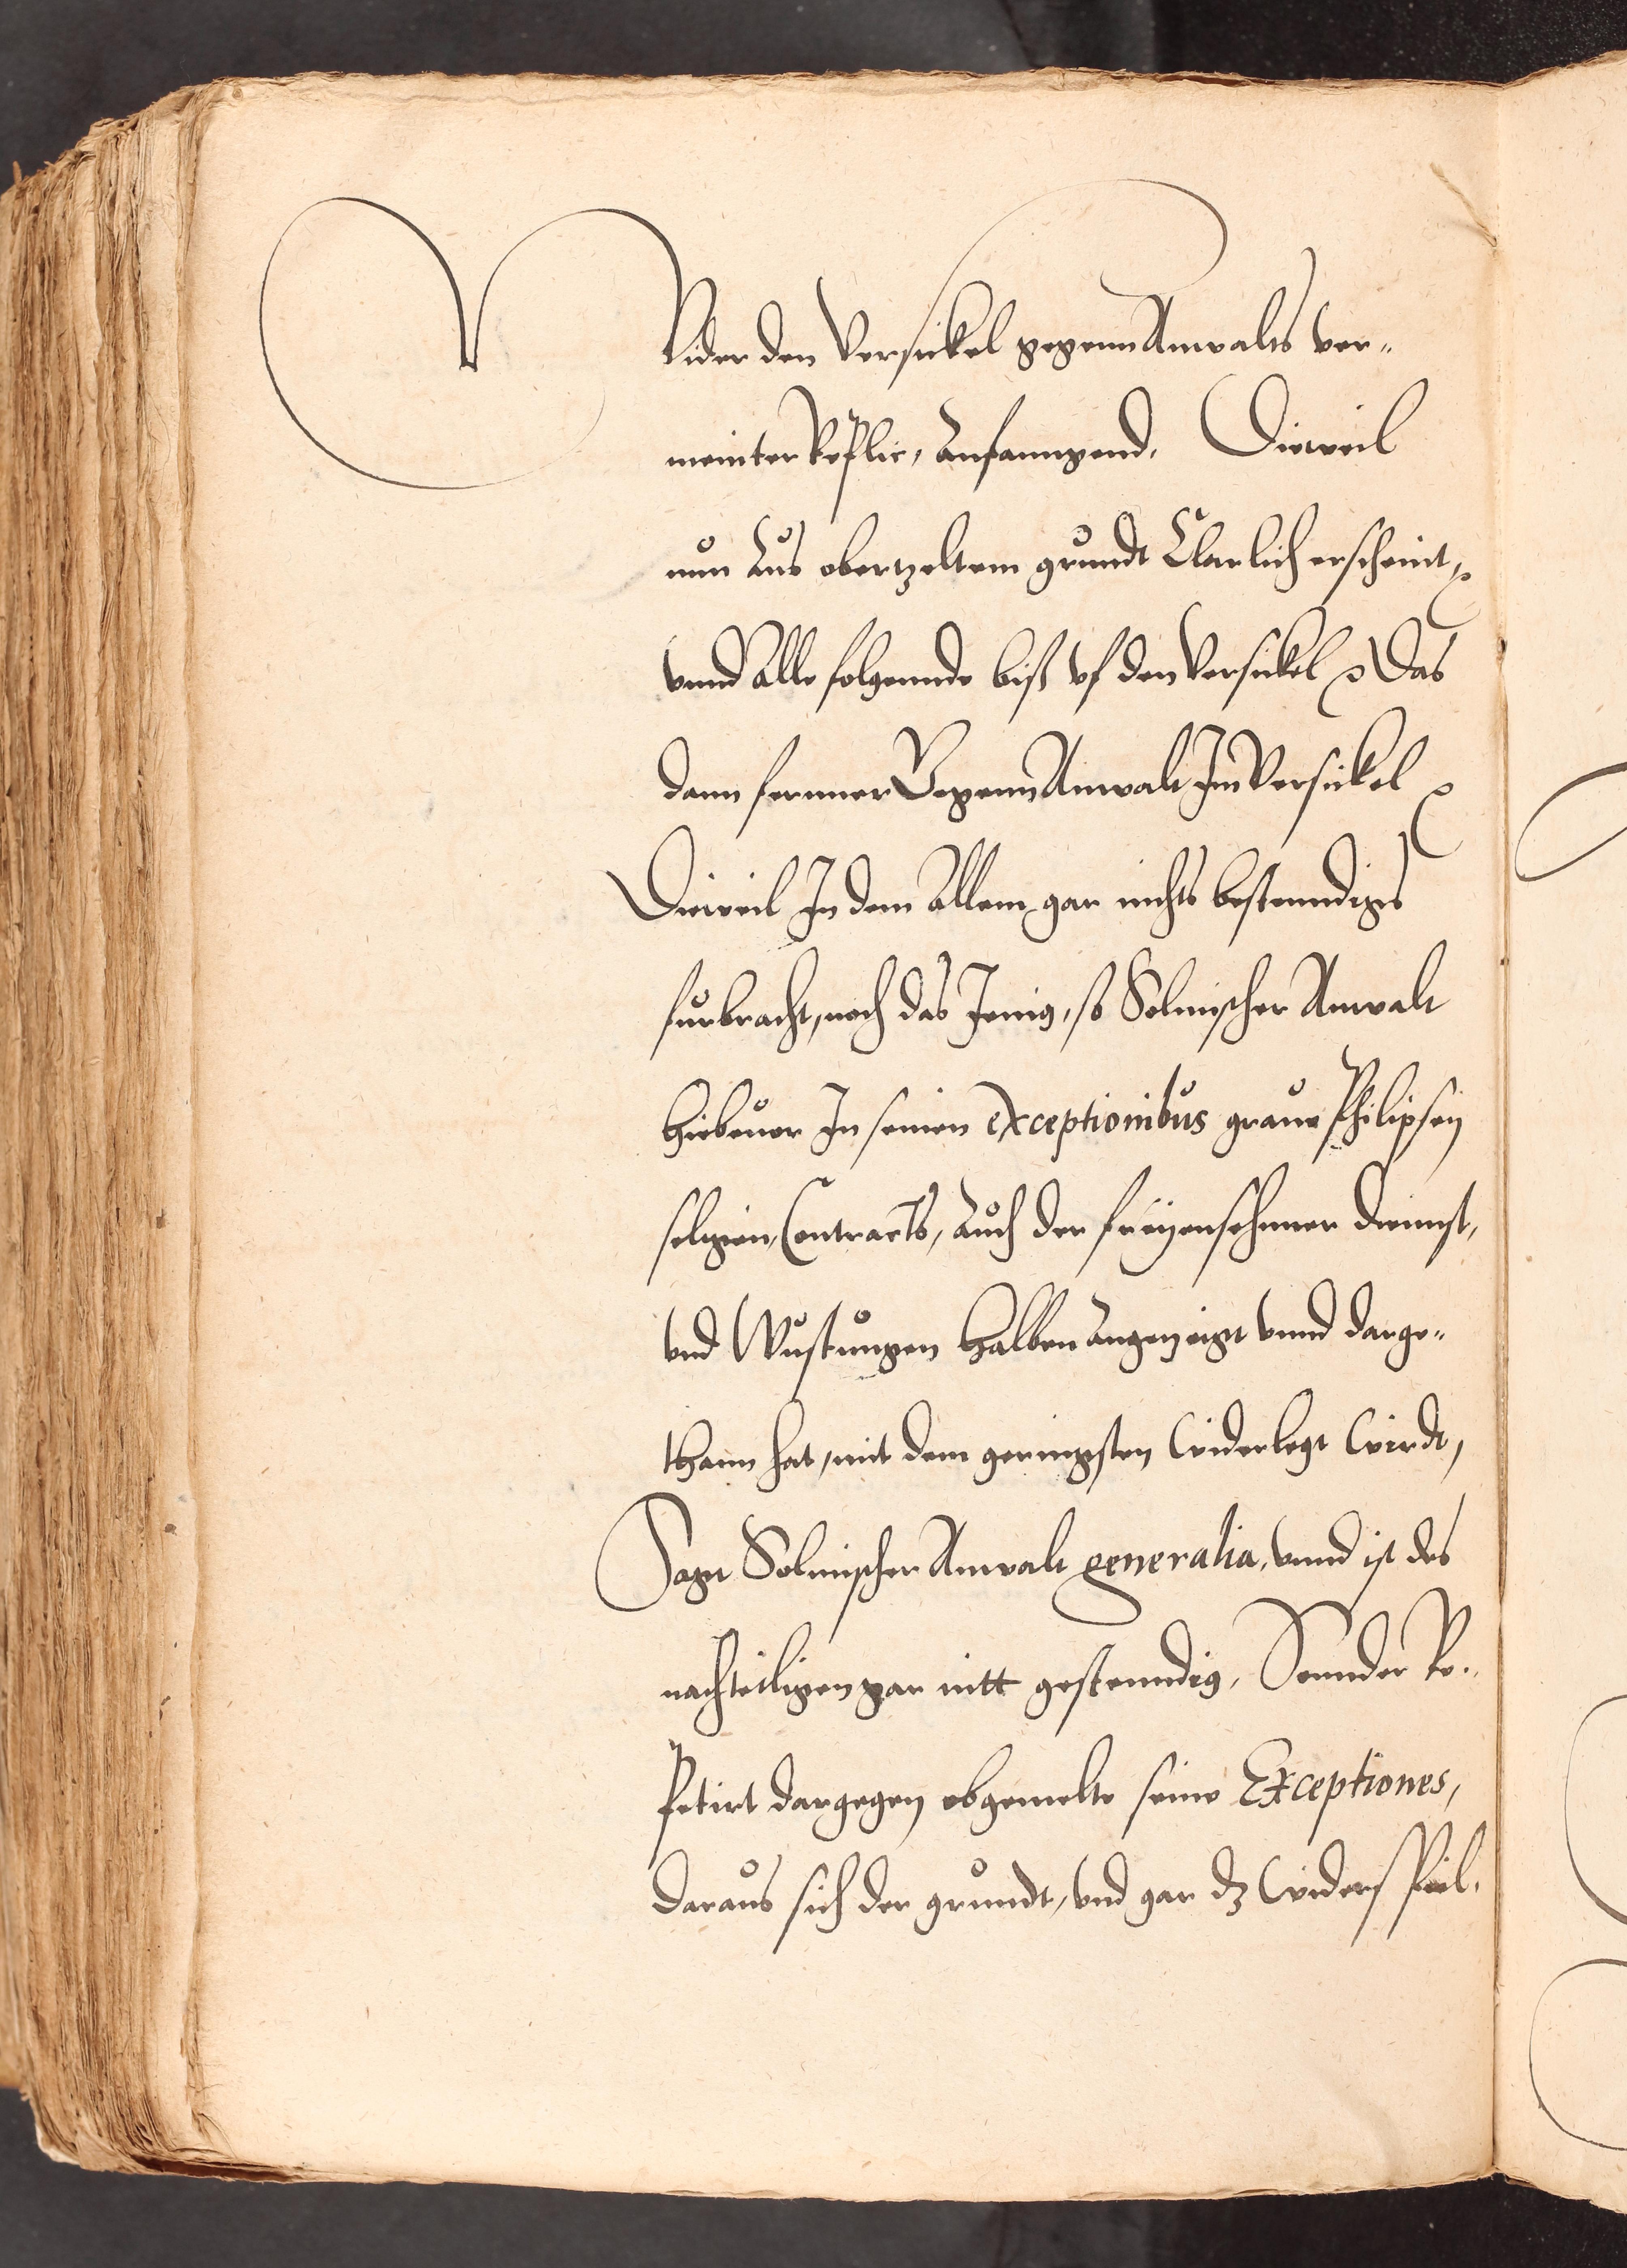 Wider den Versickel gegenn Anwalts ver¬
meinter Replic, Anfanngend, Dieweil
nun Aus obertzeltem grundt Clarlich erscheint,
vnnd Alle folgennde biß vf den Versickel Das
dann fernner Gegenn Anwalt Im Versickel
Dieweil In dem Allem gar nichts bestenndigs
furbracht, noch das Jenig, so Solmischer Anwalt
hiebeuor In seinen exceptionibus graue Philipsen
seligen, Contracts, Auch der freyensehener diennst,
vnd Wustungen halben Angezeigt vnnd darge¬
thann hat, mit dem geringsten widerlegt wirdt,
Sagt Solmischer Anwalt generalia, vnnd ist des
nachteiligen gar nitt gestenndig, Sonnder Re¬
petirt dargegen obgemelte seine Exceptiones,
daraus sich der grundt, vnd gar dz widerspiel,